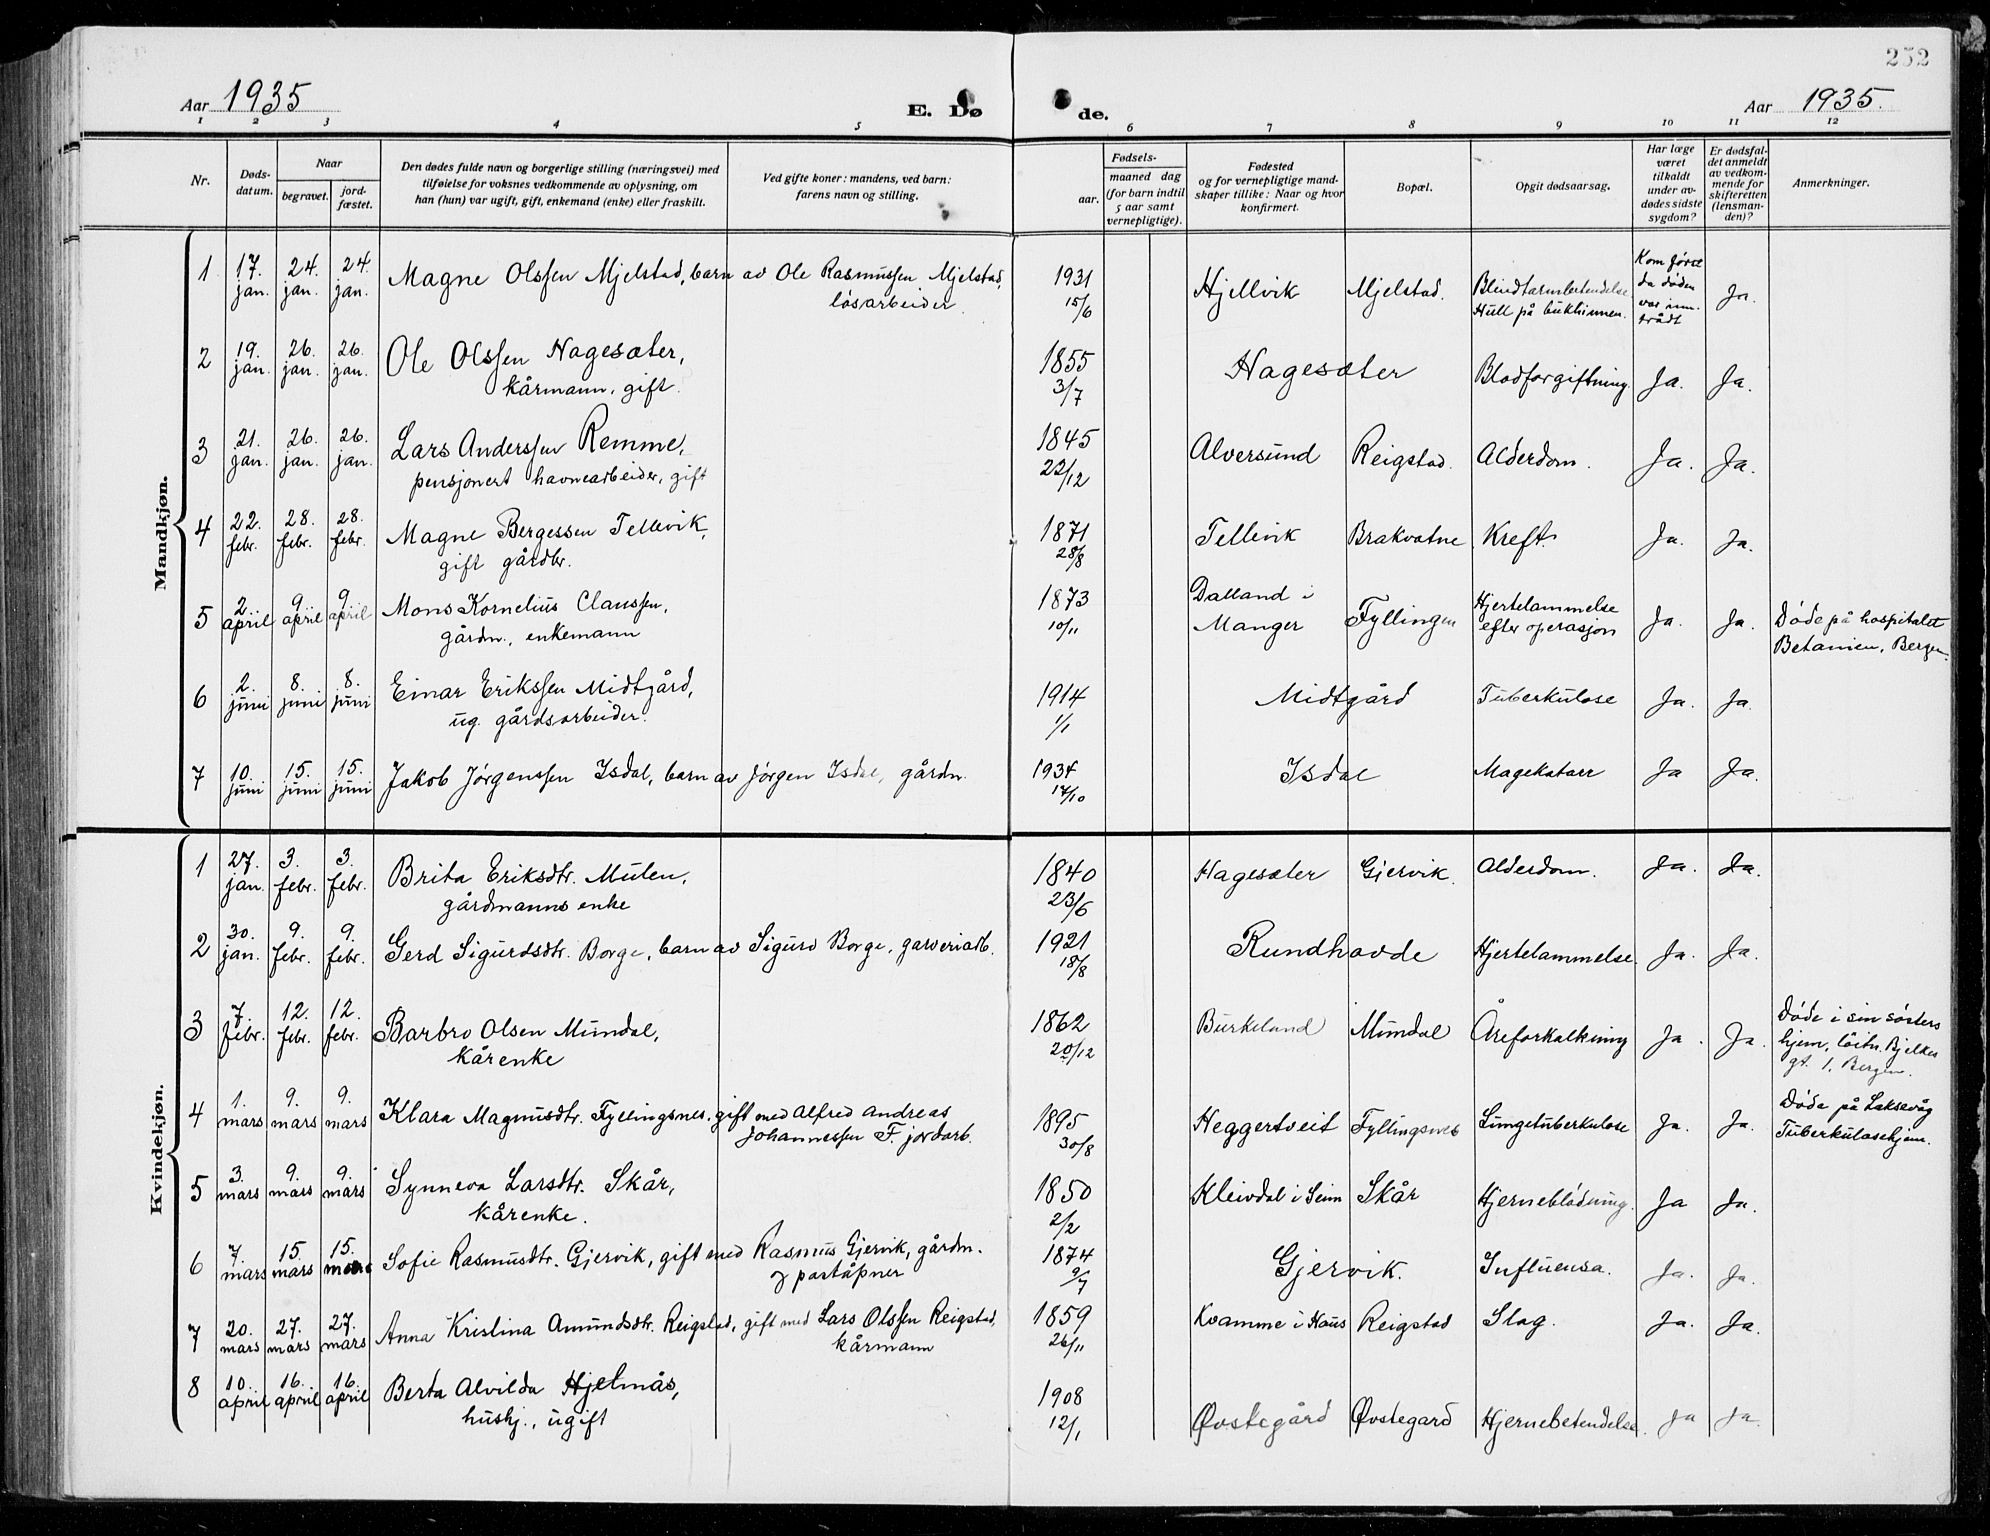 252
Aar 1935
E. Dø
de.
Aar 1935.
1 2 3 4 5 6 7 8 9 10 11 12
Nr.
Døds-
datum.
Naar
begravet.
jord-
fæstet.
Den dødes fulde navn og borgerlige stilling (næringsvei) med
tilføielse for voksnes vedkommende av oplysning, om
han (hun) var ugift, gift, enkemand (enke) eller fraskilt.
Ved gifte koner: mandens, ved barn:
farens navn og stilling.
Fødsels-
aar.
maaned dag
(for barn indtil
5 aar samt
vernepligtige).
Fødested
og for vernepligtige mand-
skaper tillike: Naar og hvor
konfirmert.
Bopæl.
Opgit dødsaarsag.
Har læge
været
tilkaldt
under av-
dødes sidste
sygdom?
Er dødsfal-
det anmeldt
av vedkom-
mende for
skifteretten
(lensman-
den)?
Anmerkninger.
Mandkjøn.
1 17. jan. 24. jan. 24. jan. Magne Olssen Mjelstad, barn av Ole Rasmussen Mjelstad, 1931 Hjellvik Mjelstad. Blindtarmbetendelse Kom først Ja.
løsarbeider. 15/6 Hull på bukhinnen. da døden
var inn-
trådt
2 19. jan. 26. jan. 26. jan. Ole Olssen Hagesæter, 1855 Hagesæter Blodforgiftning. Ja. Ja.
kårmann, gift. 3/7
3 21. jan. 26. jan. 26. jan. Lars Anderssen Remme, 1845 Alversund Reigstad. Alderdom. Ja. Ja.
pensjonert havnearbeider, gift 22/12
4 22. febr. 28. febr. 28. febr. Magne Bergessen Tellevik, 1871 Tellevik Brakvatne Kreft. Ja. Ja.
gift gårdbr. 28/8
5 2. april 9 april 9 april Mons Kornelius Claussen, 1873 Dalland i Fyllingen Hjertelammelse Ja. Ja. Døde på hospitalet
gårdm., enkemann 10/11 Manger efter operasjon Betanien, Bergen.
6 2. juni 8. juni 8. juni Einar Erikssen Midtgård, 1914 Midtgård Tuberkulose Ja. Ja.
ug. gårdsarbeider. 1/1
7 10. juni 15. juni 15. juni Jakob Jørgenssen Isdal, barn av Jørgen Isdal, gårdm. 1934 Isdal Magekatarr Ja Ja.
17/10
Kvindekjøn.
1 27. jan. 3. febr. 3. febr. Brita Eriksdtr. Mulen, 1840 Hagesæter Gjervik. Alderdom. Ja. Ja.
gårdmanns enke 23/6
2 30. jan. 9. febr. 9. febr. Gerd Sigurdsdtr. Borge, barn av Sigurd Borge, garveriarb. 1921 Rundhovde Hjertelammelse. Ja. Ja.
18/8
3 7. febr. 12. febr. 12. febr. Barbro Olsen Mundal, 1862 Burkeland Mundal Åreforkalkning Ja. Ja. Døde i sin søsters
kårenke 20/12 hjem, löitn. Bjelkes
gt. 1, Bergen.
4 1. mars 9. mars 9. mars Klara Magnusdtr. Fyllingsnes, gift med Alfred Andreas 1895 Heggertveit Fyllingsnes Lungetuberkulose Ja. Ja. Døde på Laksevåg
Johannessen F. jordarb. 30/8 Tuberkulosehjem.
5 3. mars 9. mars 9. mars Synneva Larsdtr. Skår, 1850 Kleivdal i Seim Skår Hjerneblødning. Ja Ja.
kårenke. 2/2
6 7. mars 15. mars 15. mars Sofie Rasmusdtr. Gjervik, gift med Rasmus Gjervik, gårdm. 1874 Gjervik. Influensa. Ja. Ja.
og poståpner 9/7
7 20. mars 27. mars 27. mars Anna Kristina Amundsdtr. Reigstad, gift med Lars Olssen Reigstad, 1859 Kvamme i Haus Reigstad Slag. Ja. Ja.
kårmann 26/11
8 10. april 16. april 16. april Berta Alvilda Hjelmås, 1908 Øvstegård Øvstegard Hjernebetendelse. Ja Ja.
hushj., ugift 12/1